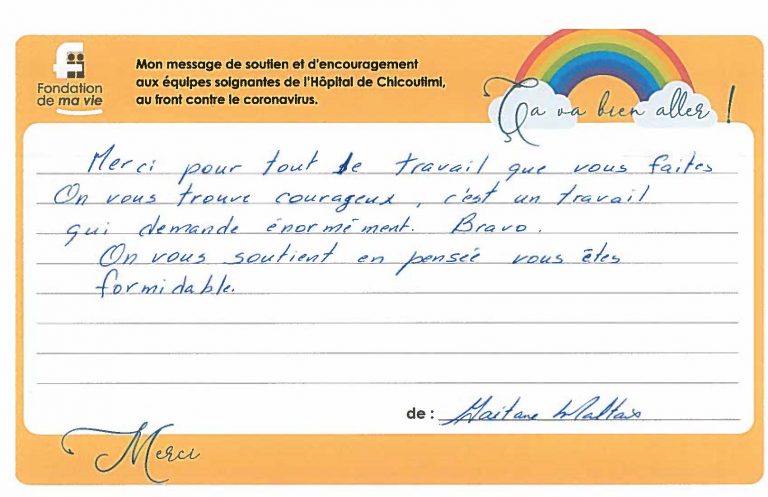 Fondation
de ma vie
Mon message de soutien et d'encouragement
aux équipes soignantes de l'Hôpital de Chicoutimi,
au front contre le coronavirus.
Ça va bien aller !
Merci pour tout le travail que vous faites
On vous trouve courageux, c'est un travail
qui demande énormément. Bravo.
On vous soutient en pensée vous êtes
formidable.
de : Gaétane Maltais
Merci